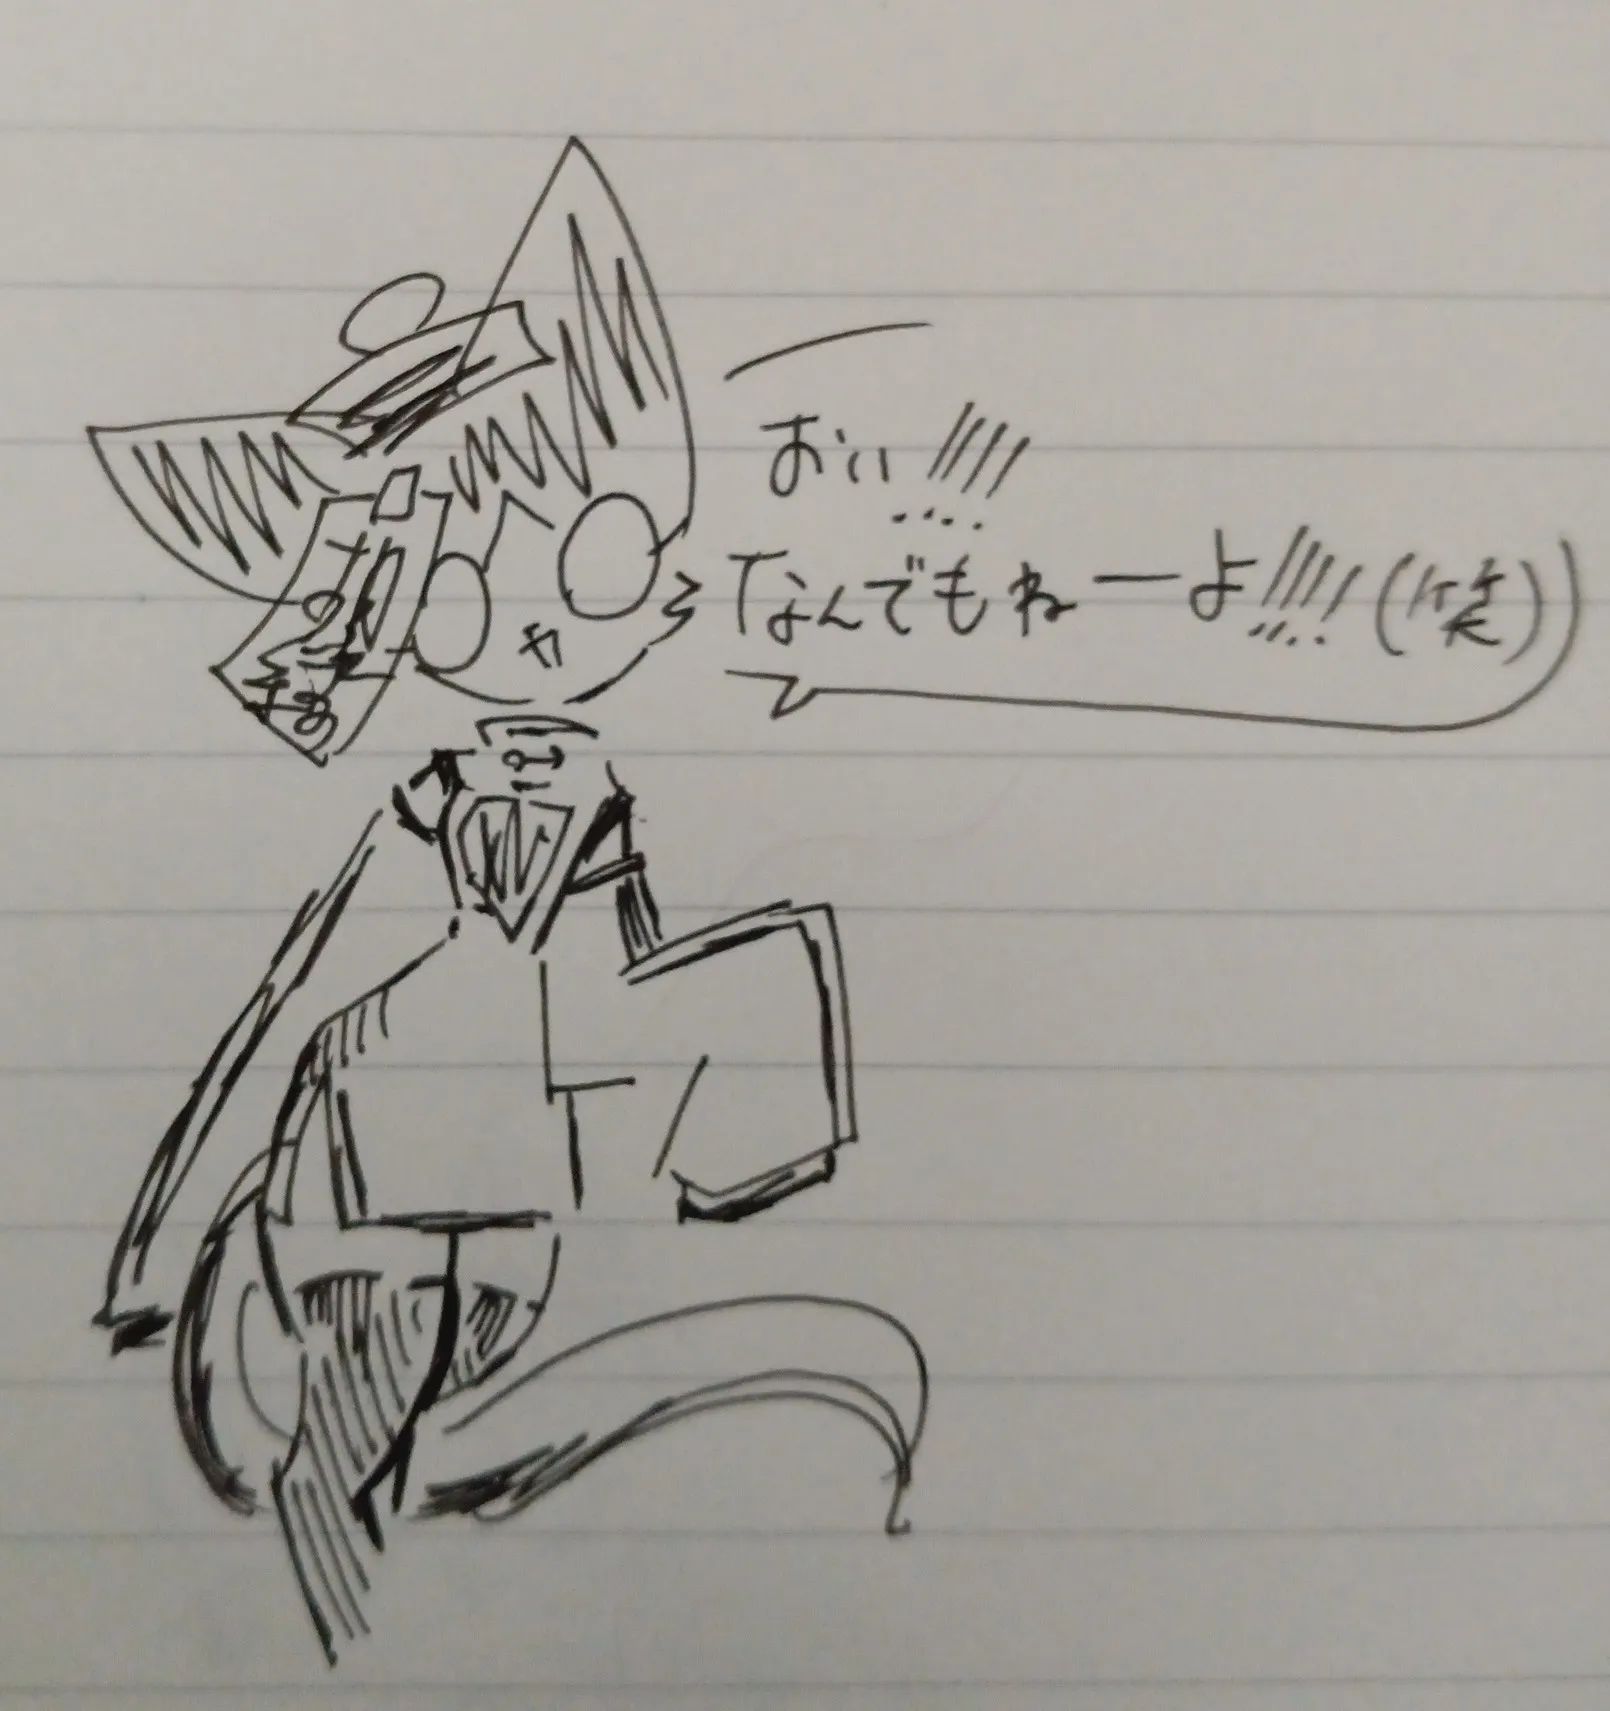 おい!!!!
なんでもねーよ!!!!(笑)